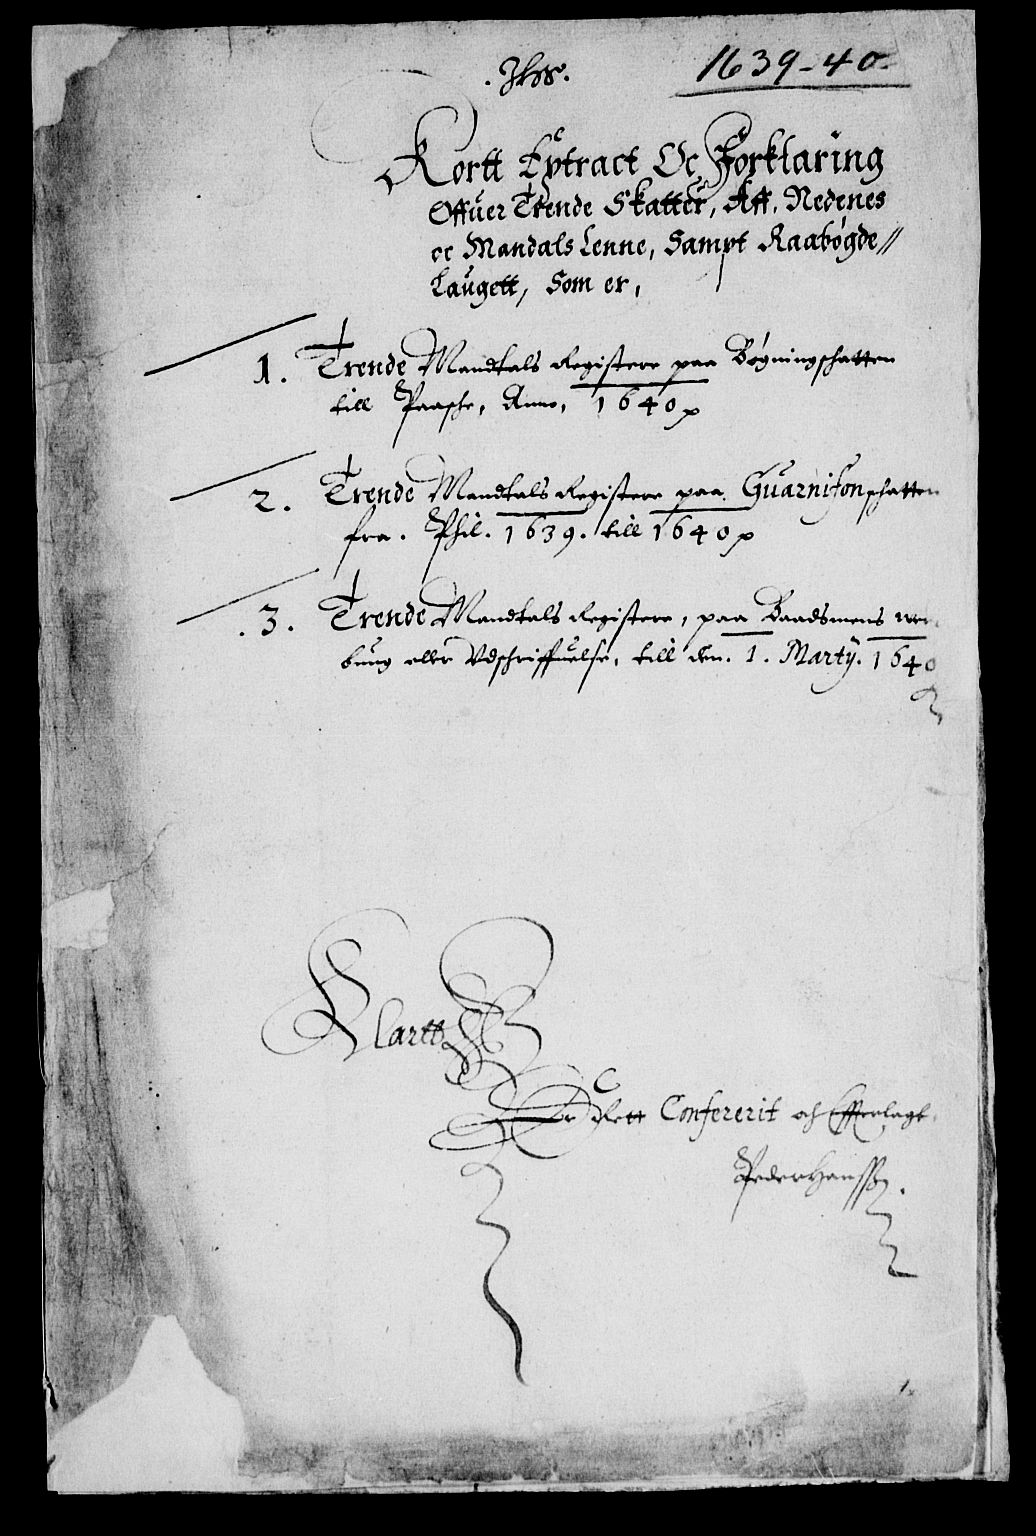 . Jhs. 1639-40.
Kortt Extract Oc Forklaring
Offuer Trende Skatter, Aff, Nedenes
oc Mandals Lenne, Sampt Raabøgde //
Laugett, Som er,
1. Trende Mandtals Registere paa Bøgningschatten
till Paasche, Anno, 1640
2. Trende Mandtals Registere paa Guarnisonschatten
fra. Phil. 1639. till 1640
. 3. Trende Mandtals Registere, paa Baadsmens wer
bung eller Vdschriffuelse, till den. 1. Martÿ. 1640
Klartt
Er Rett Confererit och Efferlagt
Peder Hanssen.